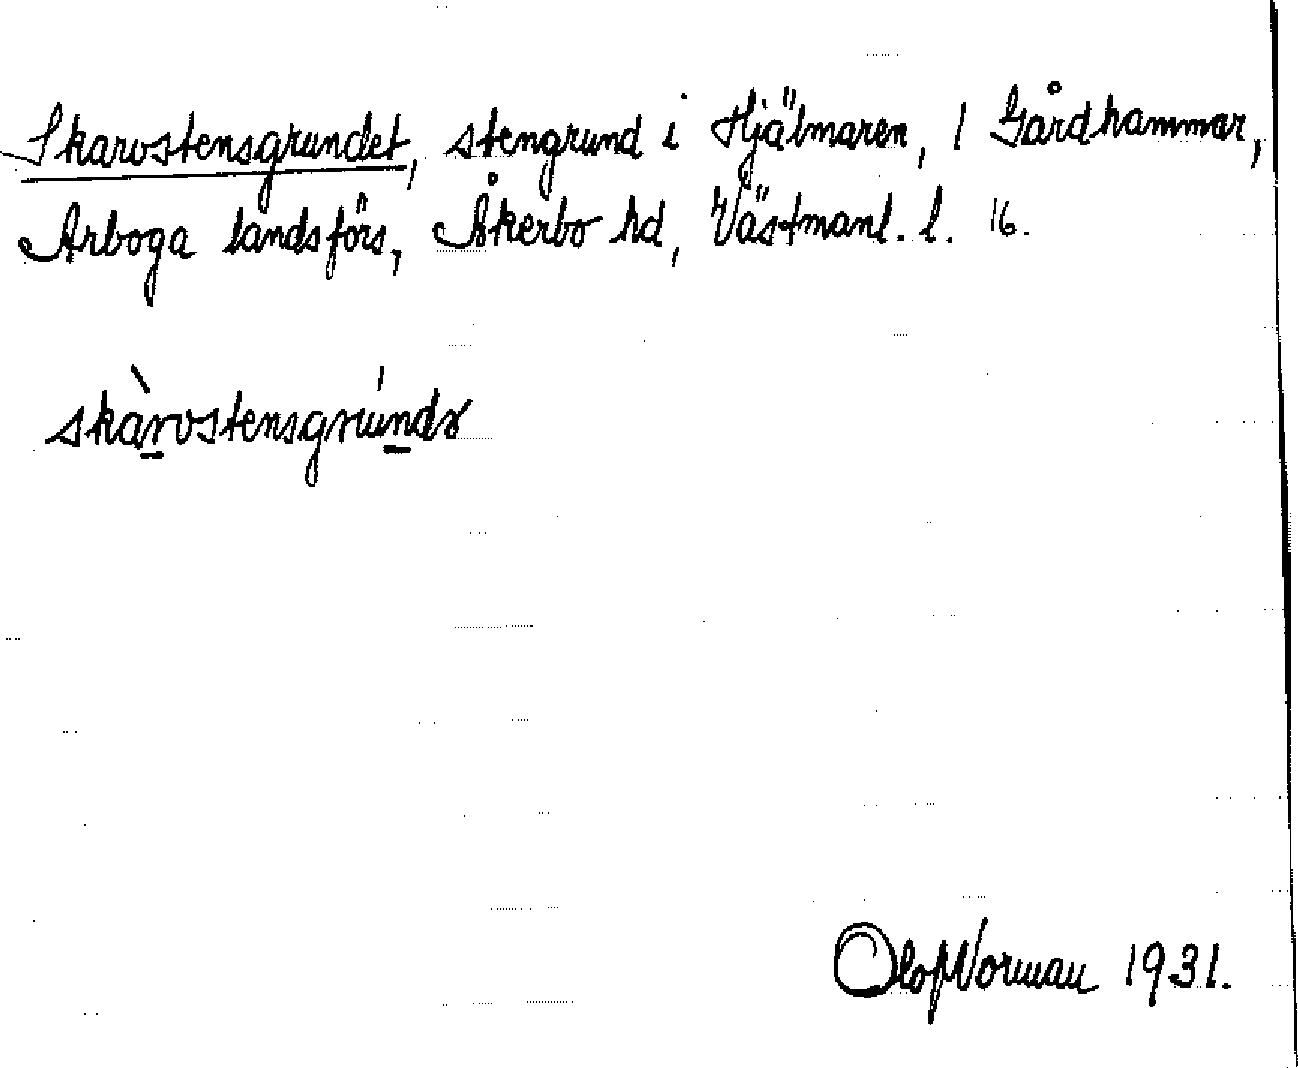 Skarvstensgrundet, stengrund i Hjälmaren, 1 Gårdhammar,
Arboga landsförs, Åkerbo hd, Västmanl. l. 16.
skàrvstensgrúndə
Olof Norman 1931.